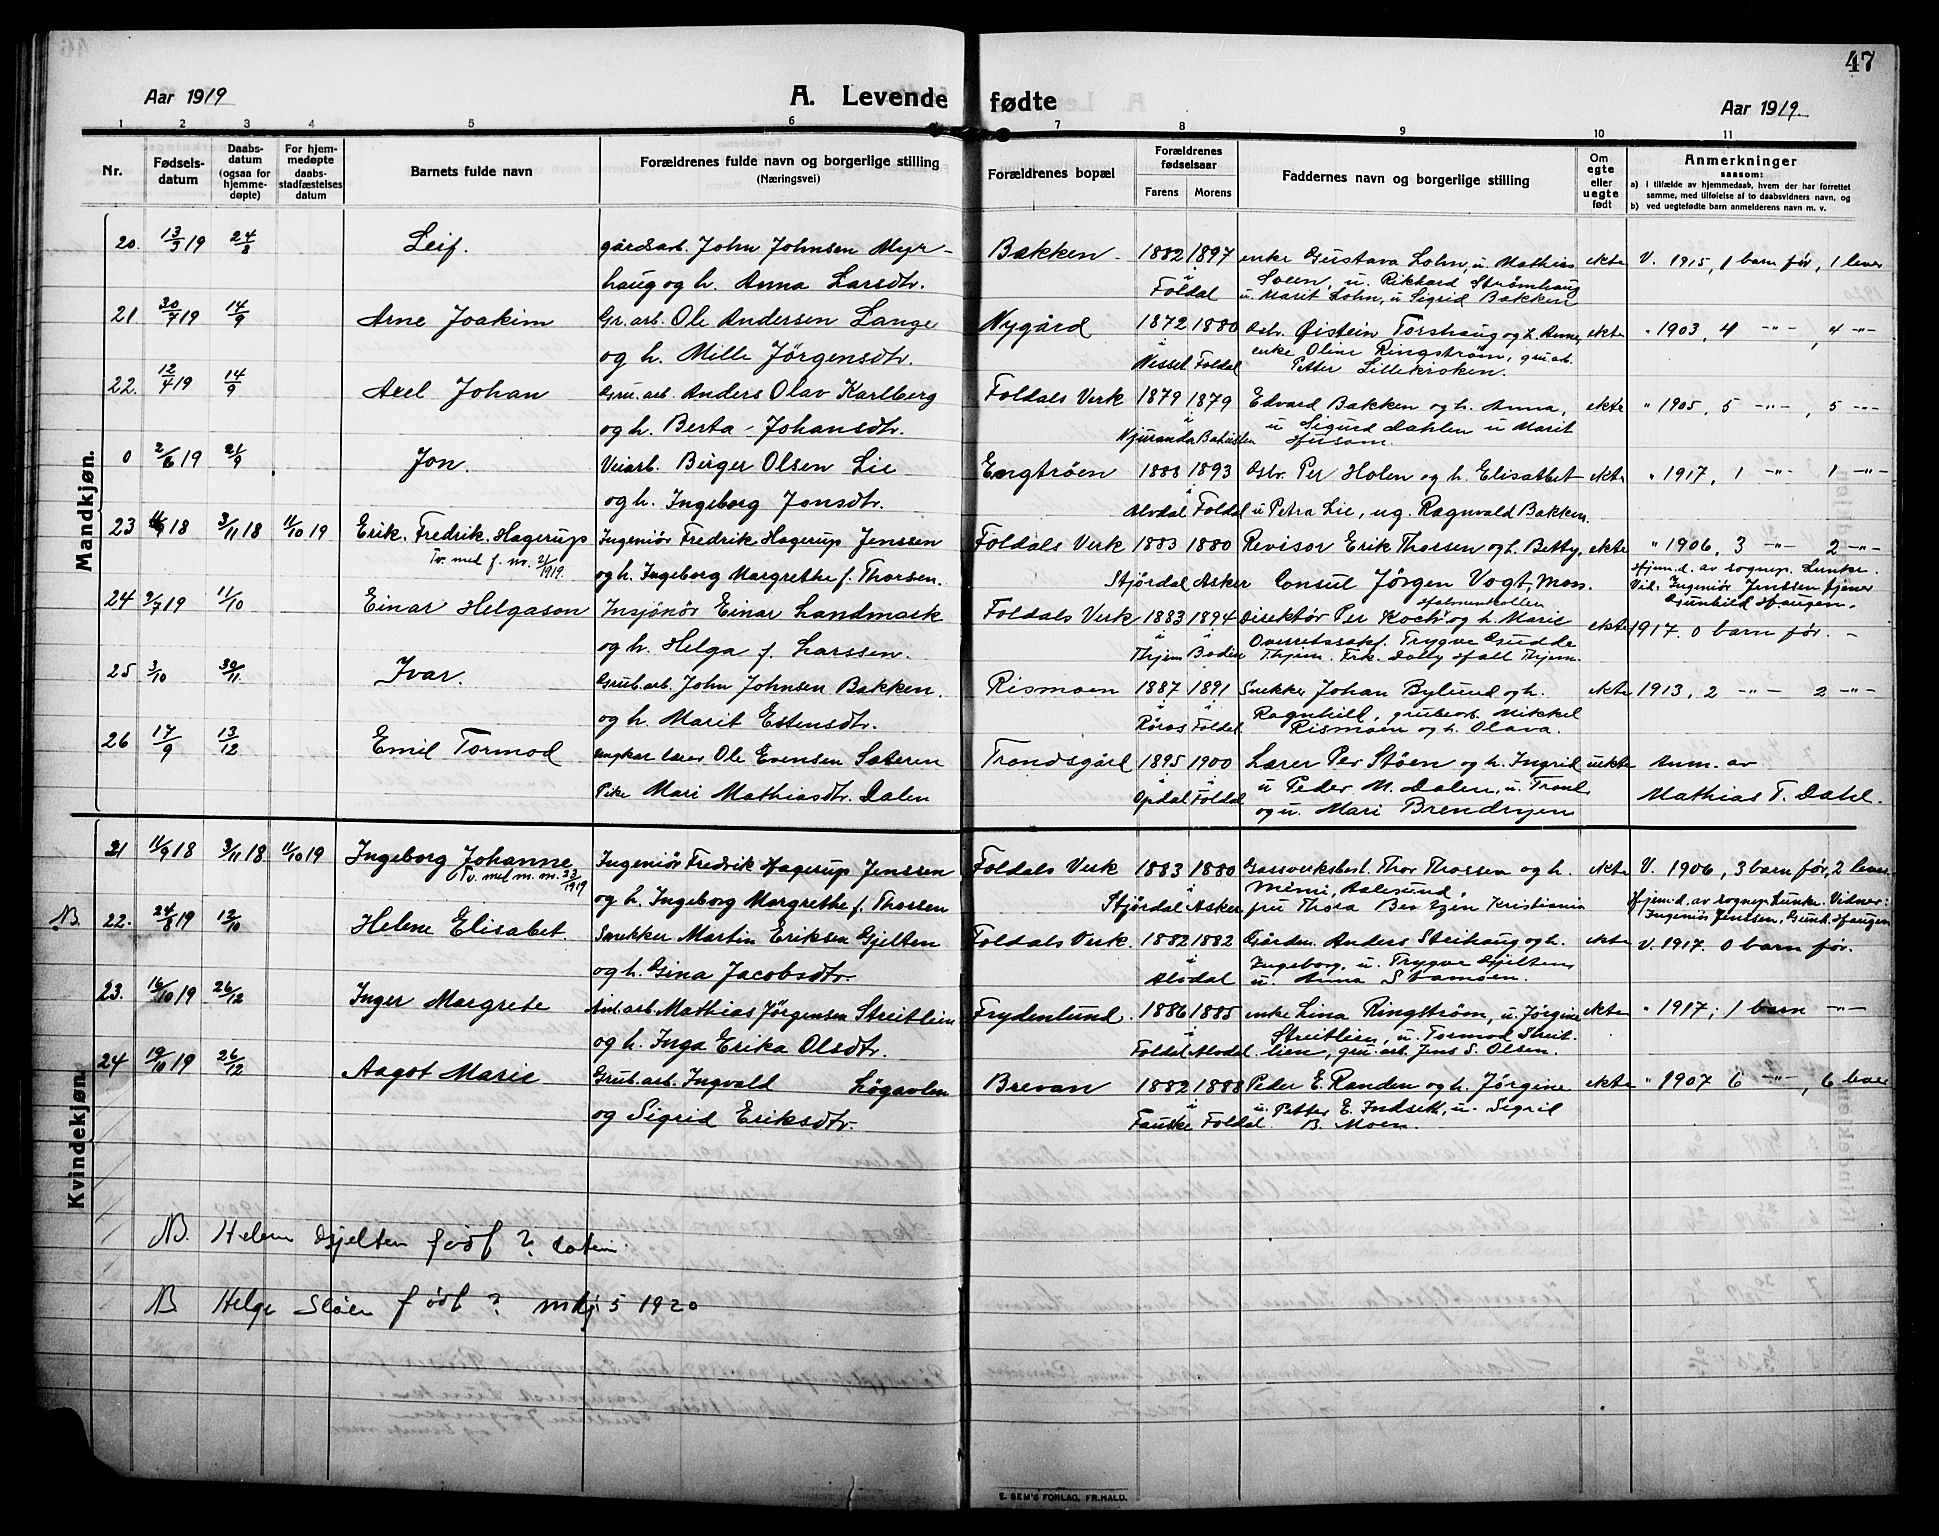 47
Aar 1919
A. Levende fødte
Aar 1919.
1 2 3 4 5 6 7 8 9 10 11
Nr.
Fødsels-
datum
Daabs-
datum
(ogsaa for
hjemme-
døpte)
For hjem-
medøpte
daabs-
stadfæstelses
datum
Barnets fulde navn
Forældrenes fulde navn og borgerlige stilling
(Næringsvei)
Forældrenes bopæl
Forældrenes
fødselsaar
Farens Morens
Faddernes navn og borgerlige stilling
Om
egte
eller
uegte
født
Anmerkninger
saasom:
a) i tilfælde av hjemmedaab, hvem der har forrettet
samme, med tilføielse af to daabsvidners navn, og
b) ved uegtefødte barn anmelderens navn m. v.
Mandkjøn.
20. 13/3 19 24/8 Leif. gårdsarb. John Johnsen Myr- Bakken 1882 1897 enke Gustava Lohn, u. Mathias ekte V. 1915, 1 barn før, 1 lever
haug og h. Anna Larsdtr. Foldal Soleen, u. Rikhard Strømhaug
u. Marit Lohn, u Sigrid Bakken
21 30/7 19 14/9 Arne Joakim Gr. arb. Ole Andersen Lange Nygård 1872 1880 Øistein Torshaug og h. Anne, ekte " 1903, 4 -"- , 4 -"-
og h. Mille Jørgensdtr. Foldal enke Oline Ringstrøm, gru.arb.
Petter Lillekroken.
22. 12/4 19 14/9 Axel Johan Gru. arb. Anders Olav Karlberg Foldals Verk 1879 1879 Edvard Bakken og h. Anna, ekte " 1905, 5 -"- , 5 -"-
og h. Berta Johansdtr. u Sigurd Dahlen u Marit
Husom.
0 2/6 19 21/9 Jon. Veiarb. Birger Olsen Lie Engtrøen 1888 1893 Per Holen og h. Elisabet ekte " 1917, 1 -"- 1 -"-
og h. Ingeborg Jonsdtr. Alvdal Foldal u Petra Lie, ug. Ragnvald Bakken.
23 11/9 18 3/11 18 11/10 19 Erik Fredrik Hagerup Ingeniør Fredrik Hagerup Jenssen Foldals Verk 1883 1880 Revisor Erik Thorsen og h. Betty, ekte " 1906, 3 -"- 2 -"-
Tv. med f. nr. 21/1919. og h. Ingeborg Margrethe f. Thorsen. Stjørdal Asker Consul Jørgen Vogt, Moss. Hjem.d. av sognep. Lunke.
Vid. Ingeniør Jenssen tjener
Gunhild Haugen.
24 2/7 19 11/10 Einar Helgason Insjønør Einar Landmark Foldals Verk 1883 1894 Direktør Per Koch og h. Marie ekte 1917. 0 barn før. -
Holmenkollen
og h. Helga f. Larssen. Thjem Boden Overretssakf. Trygve Gudde
Thjem. Frk. Dolly Hall Thjem.
25 3/10 30/11 Ivar. Grub.arb. John Johnsen Bakken. Rismoen 1887 1891 Snekker Johan Bylund og h. ekte 1913, 2 -"- 2 -"-
og h. Marit Estensdtr. Røros Foldal Ragnhild, grubearb. Mikkel
Rismoen og h. Olava.
26 17/9 13/12 Emil Tormod ungkar Ole Evensen Sæteren Trondsgård 1895 1900 Lærer Per Støen og h. Ingrid uekte Anm. av
Pike Mari Mathiasdtr. Dalen Opdal Foldal u Peder M. Dalen, u. Trond Mathias T. Dahl.
og u. Mari Brendryen
Kvindekjøn.
21 11/9 18 3/11 18 11/10 19 Ingeborg Johanne Ingeniør Fredrik Hagerup Jenssen Foldals Verk 1883 1880 Gassverksbest. Thor Thorsen og h. ekte V. 1906, 3 barn før, 2 lever
Tv. med m. nr. 23/1919 og h. Ingeborg Margrethe f. Thorsen Stjørdal Asker Mimi, Aalesund, Hjem.d. av sognep. Lunke. Vidner:
fru Thora Bentzen Kristiania Ingeniør Jenssen, Gunh. Haugen
NB 22. 24/8 19 12/10 Helene Elisabet. Snekker Martin Eriksen Gjelten Foldals Verk. 1882 1882 Gården. Anders Steihaug og h. ekte V. 1917. 0 barn før.
og h. Gina Jacobsdtr. Alvdal Ingeborg, u. Trygve Gjelten
u. Anna Stamoen.
23. 16/10 19 26/12 Inger Margrete Anl.arb. Mathias Jørgensen Streitlien Frydenlund. 1886 1885 enke Lina Ringstrøm, u. Jørgine ekte " 1917, 1 barn -"-
og h. Inga Erika Olsdtr. Foldal Alvdal Streitlien, u. Tormod Streit-
lien, gru. arb. Jens S. Olsen.
24 19/10 19 26/12 Aagot Marie Grub.arb. Ingvald Løgavlen Brevan 1882 1888 Peder E. Randen og h. Jørgine ekte " 1907 6 -"- , 6 lever
og Sigrid Eriksdtr. Fauske Foldal u. Petter E. Indsett, u. Sigrid
B. Moen.
NB. Helene Gjelten født ?
NB Helge Støen født ? mkj 5 1920
E. SEM'S FORLAG, FR.HALD.